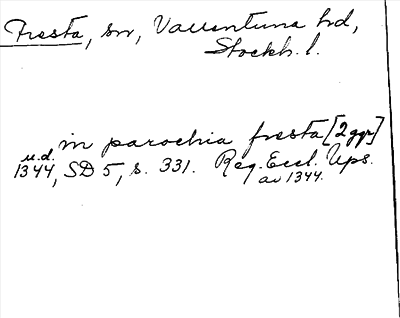 Fresta, sn, Vallentuna hd,
Stockh. l.
in parochia fresta [2ggr]
u.d.
1344, SD 5, s. 331. Reg. Eccl. Ups.
av 1344.